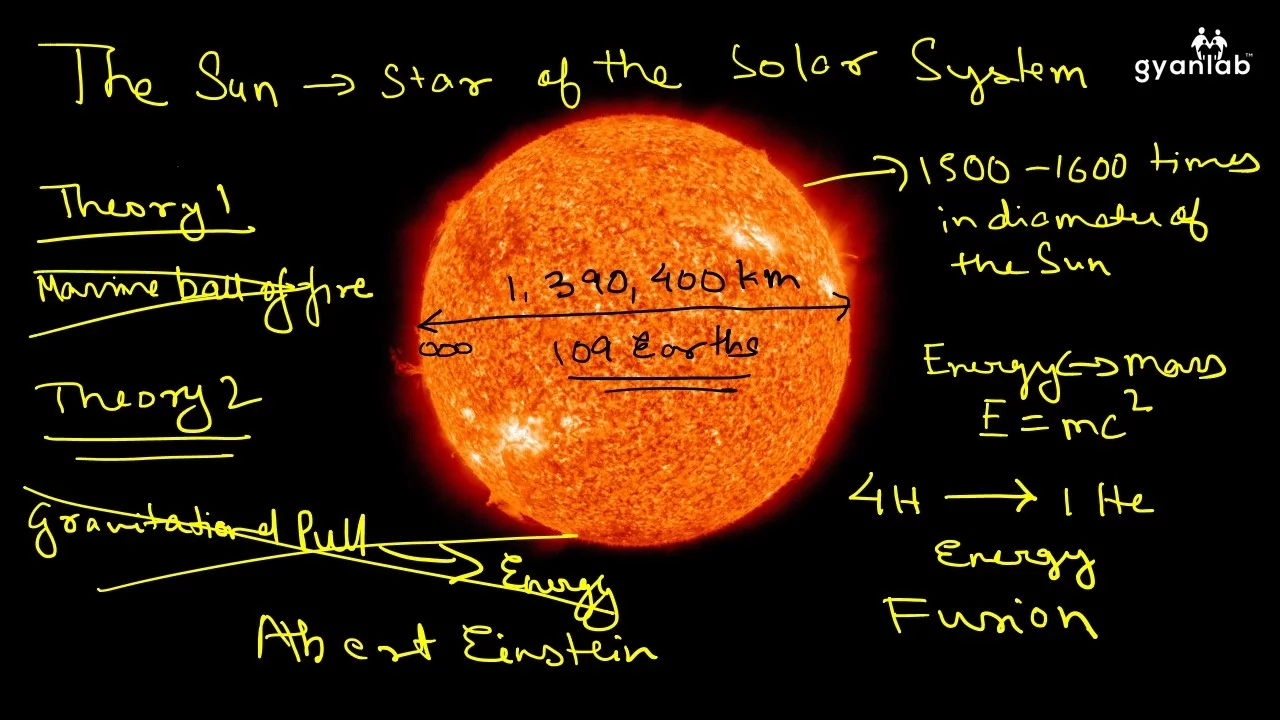 The Sun → Star of the Solar System
gyanlab™
Theory 1
Massive ball of fire
Theory 2
Gravitational Pull
→ Energy
Albert Einstein
1,390,400 km
000
109 Earths
→ 1500 - 1600 times
in diameter of
the Sun
Energy ↔ mass
E = mc²
4H → 1 He
Energy
Fusion